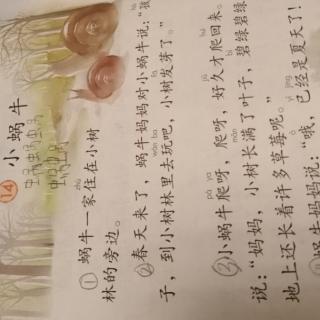 14 小蜗牛
zhù
① 蜗牛一家住在小树
林的旁边。
hái
② 春天来了，蜗牛妈妈对小蜗牛说：“孩
wán ba
子，到小树林里去玩吧，小树发芽了。”
pá ya
③ 小蜗牛爬呀，爬呀，好久才爬回来。
mǎn
说：“妈妈，小树长满了叶子，碧绿碧绿
地上还长着许多草莓呢。”
yǐ jīng
蜗牛妈妈说：“哦，已经是夏天了！